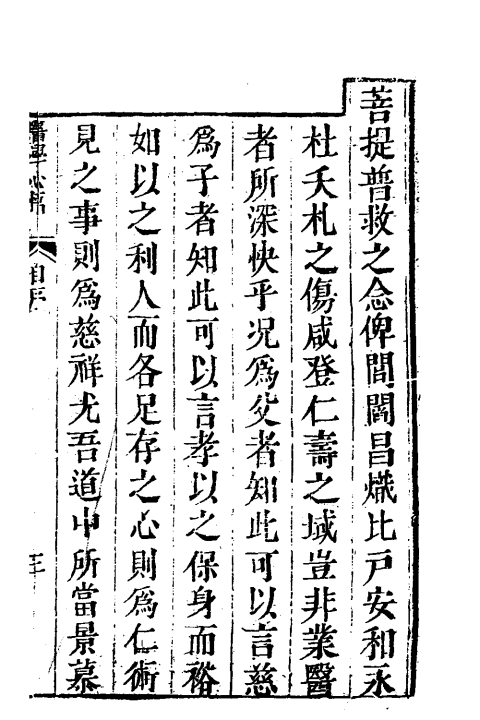 菩提普救之念俾閭閻昌熾比戶安和永
杜夭札之傷咸登仁壽之域豈非業醫
者所深快乎况爲父者知此可以言慈
爲子者知此可以言孝以之保身而裕
如以之利人而各足存之心則爲仁術
見之事則爲慈祥尤吾道中所當景慕
醫學心悟
自序
三